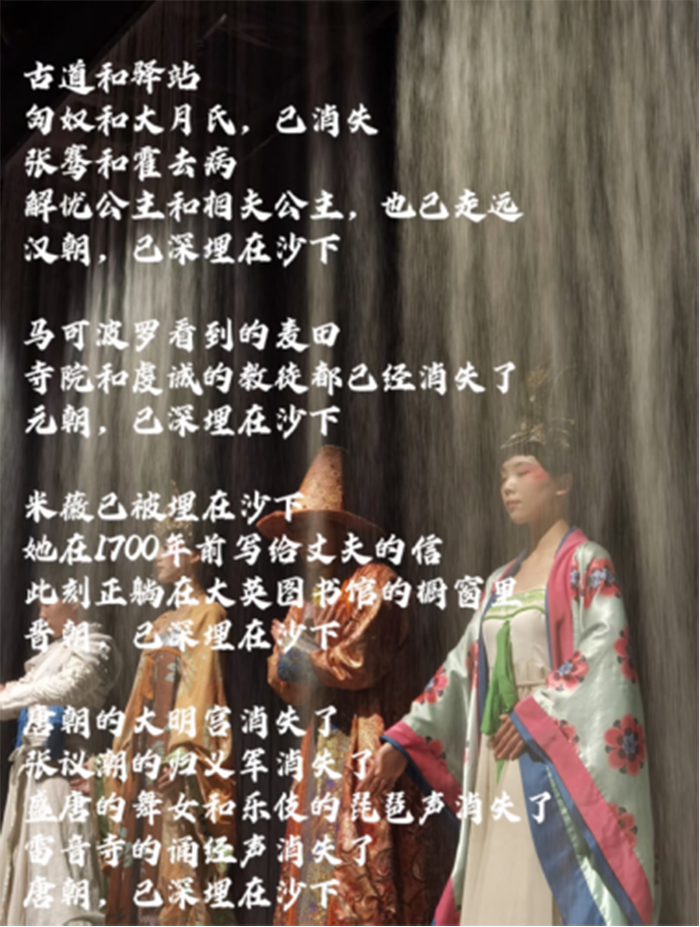 古道和驿站
匈奴和大月氏，已消失
张骞和霍去病
解忧公主和相夫公主，也已走远
汉朝，已深埋在沙下
马可波罗看到的麦田
寺院和虔诚的教徒都已经消失了
元朝，已深埋在沙下
米薇已被埋在沙下
她在1700年前写给丈夫的信
此刻正躺在大英图书馆的橱窗里
晋朝，已深埋在沙下
唐朝的大明宫消失了
张议潮的归义军消失了
盛唐的舞女和乐伎的琵琶声消失了
雷音寺的诵经声消失了
唐朝，已深埋在沙下